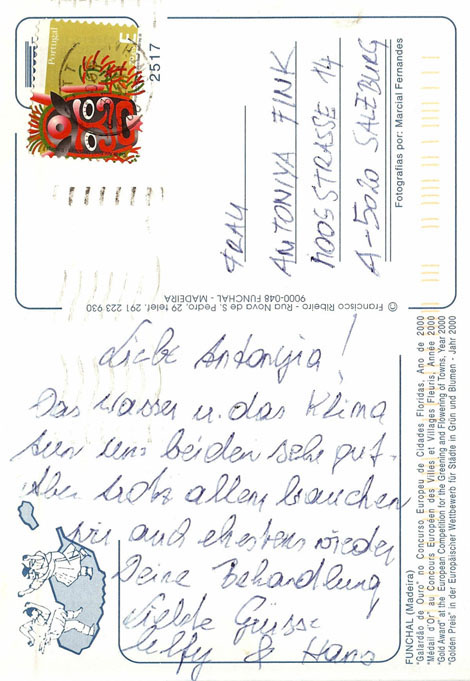 Portugal
E
2517
FRAU
ANTONIYA FINK
MOOSSTRASSE 14
A-5020 SALZBURG
Fotografias por: Marcial Fernandes
© Francisco Ribeiro - Rua Nova de S. Pedro, 29 Telef. 291 223 930
9000-048 FUNCHAL - MADEIRA
Liebe Antoniya!
Das Wasser u. das Klima
tun uns beiden sehr gut.
Aber trotz allem brauchen
wir auch ehestens wieder
Deine Behandlung
Grüsse
& Hans
FUNCHAL (Madeira)
"Galardão de Ouro" no Concurso Europeu de Cidades Floridas, Ano de 2000
"Médail d'Or" au Concours Européen des Villes et Villages Fleuris, Année 2000
"Gold Award" at the European Competition for the Greening and Flowering of Towns, Year 2000
"Golden Preis" in der Europäischer Wettbewerb für Städte in Grün und Blumen - Jahr 2000